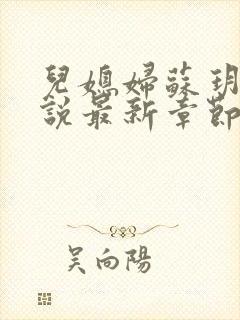 兒媳婦蘇玥
說最新章節
吳向陽